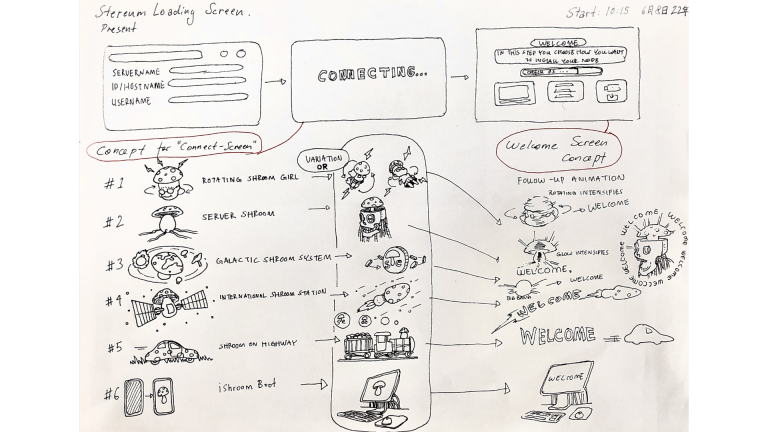 Stereum Loading Screen.
Present
Start: 10:15 6月8日22年
SERVERNAME
ID/HOSTNAME
USERNAME
CONNECTING...
WELCOME
IN THIS STEP YOU CHOOSE HOW YOU WANT
TO INSTALL YOUR NODE
Concept for "Connect-Screen"
VARIATION
OR
Welcome Screen
Concept
FOLLOW-UP ANIMATION
#1 ROTATING SHROOM GIRL
ROTATING INTENSIFIES
WELCOME
#2 SERVER SHROOM
GLOW INTENSIFIES
WELCOME.
WELCOME WELCOME WELCOME WELCOME WELCOME
#3 GALACTIC SHROOM SYSTEM
WELCOME
BIG BANG
#4 INTERNATIONAL SHROOM STATION
WELCOME
#5 SHROOM ON HIGHWAY
WELCOME
#6 iShroom Boot
WELCOME